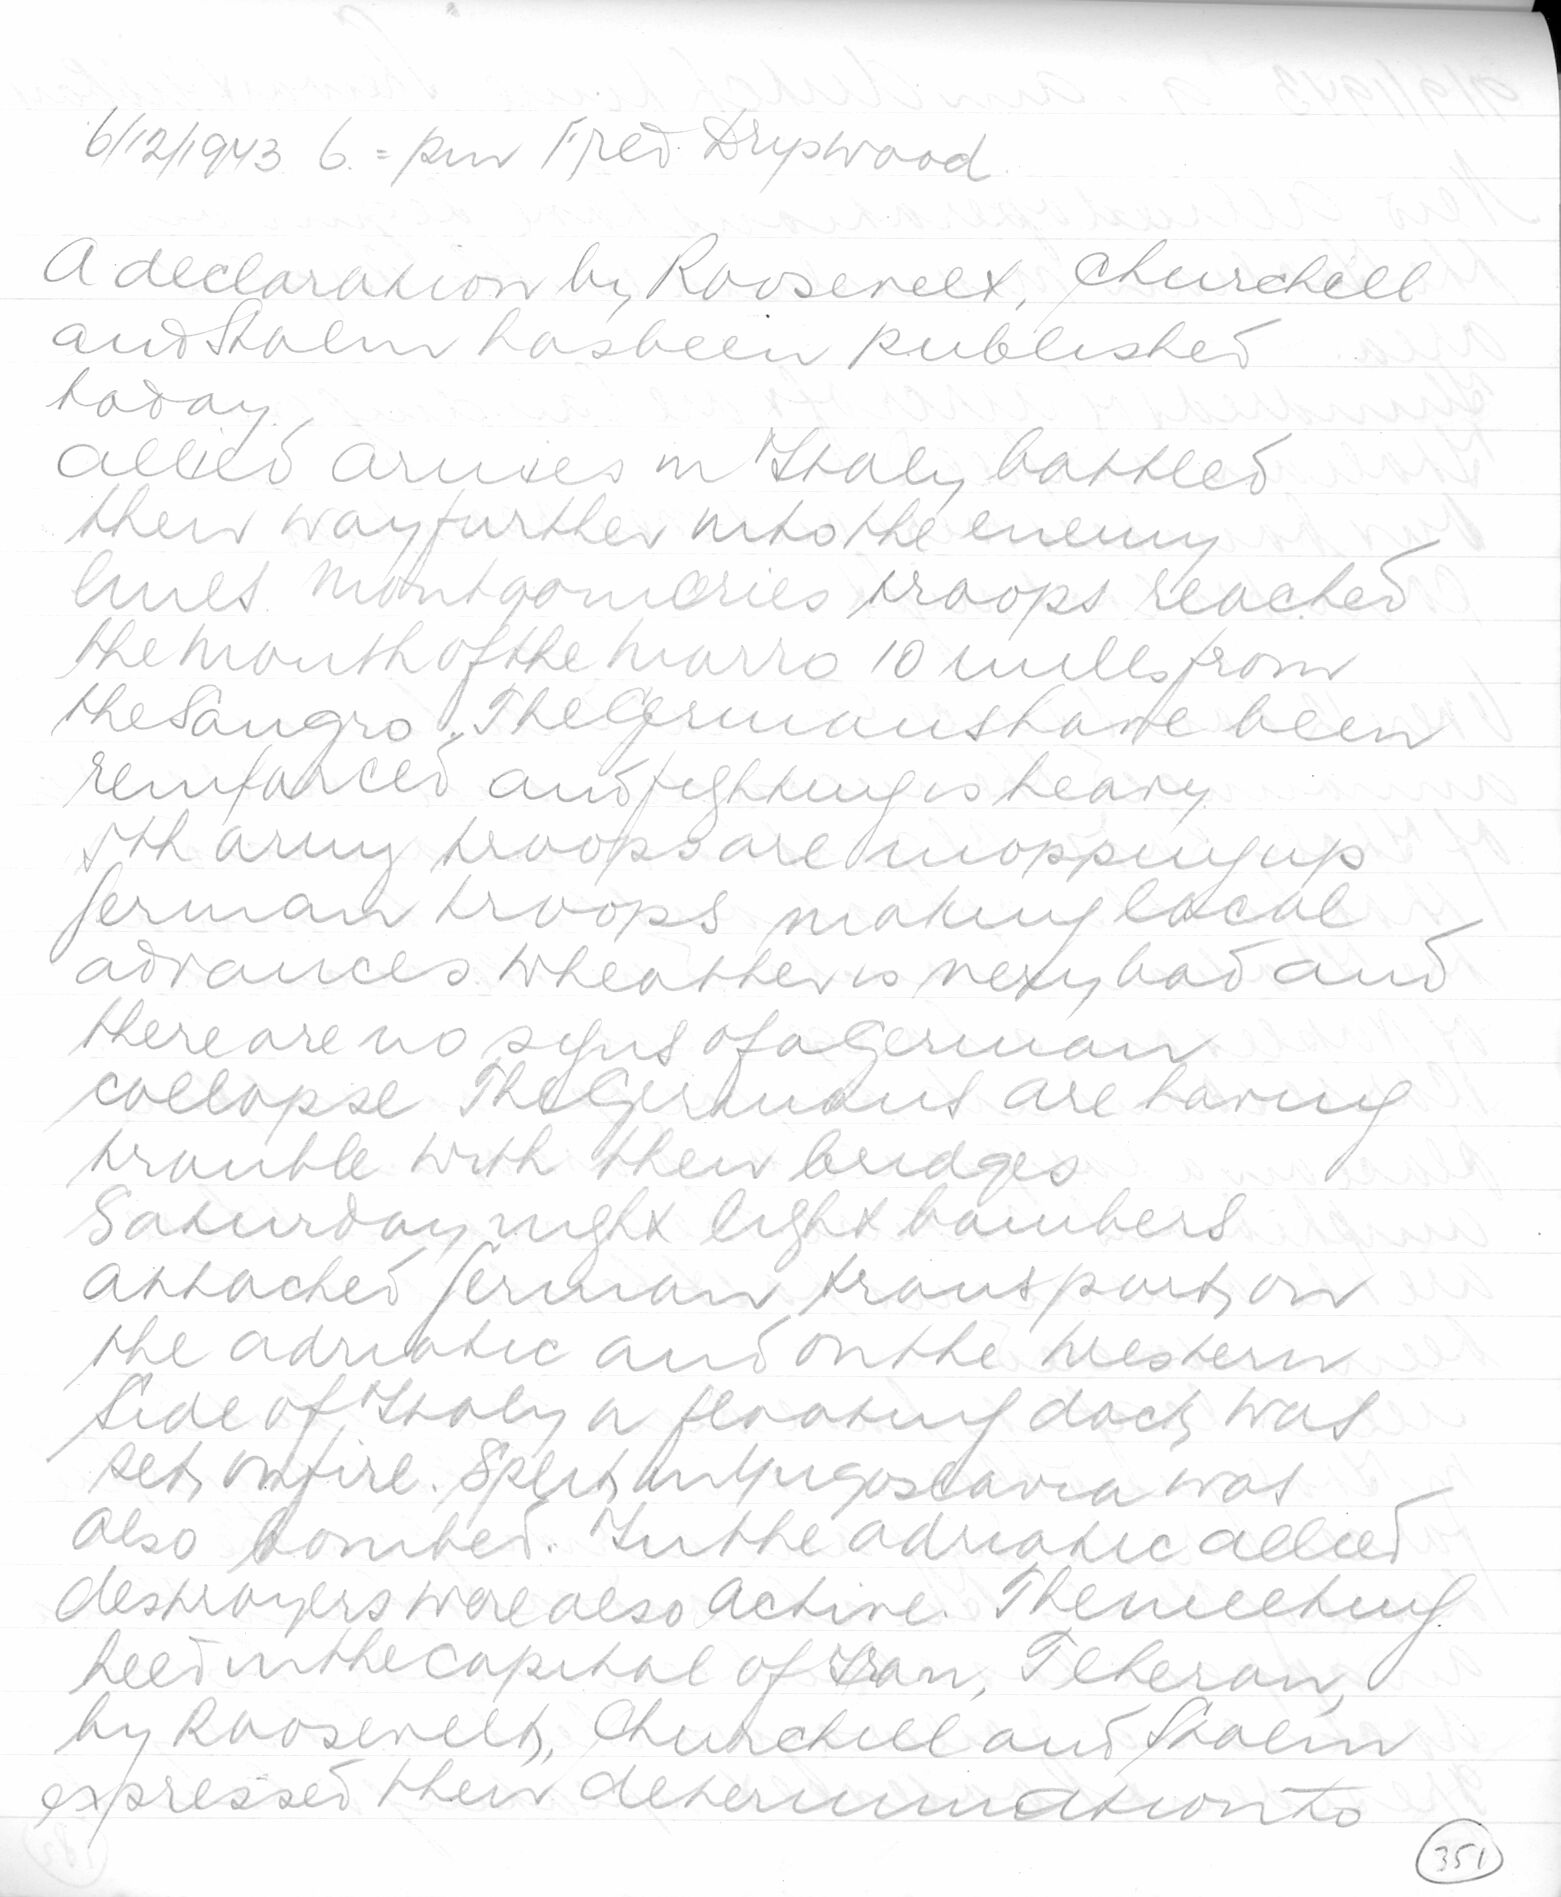 6/12/1943 6.= pm Fred Drypwood
A declaration by Roosevelt, Churchill
and Stalin has been published
today.
allied armies in Italy battled
their way further into the enemy
lines. Montgomeries troops reached
the mouth of the Morro 10 miles from
the Sangro. The Germans have been
reinforced and fighting is heavy.
5th army troops are mopping up
German troops making local
advances. Wheather is very bad and
there are no signs of a German
collapse The Germans are having
trouble with their bridges
Saturday night light bombers
attacked German transport on
the adriatic and on the western
side of Italy a floating dock was
set on fire. Split in Yugoslavia was
also bombed. In the adriatic allied
destroyers were also active. The meeting
held in the capital of Iran, Teheran,
by Roosevelt, Churchill and Stalin
expressed their determination to
351